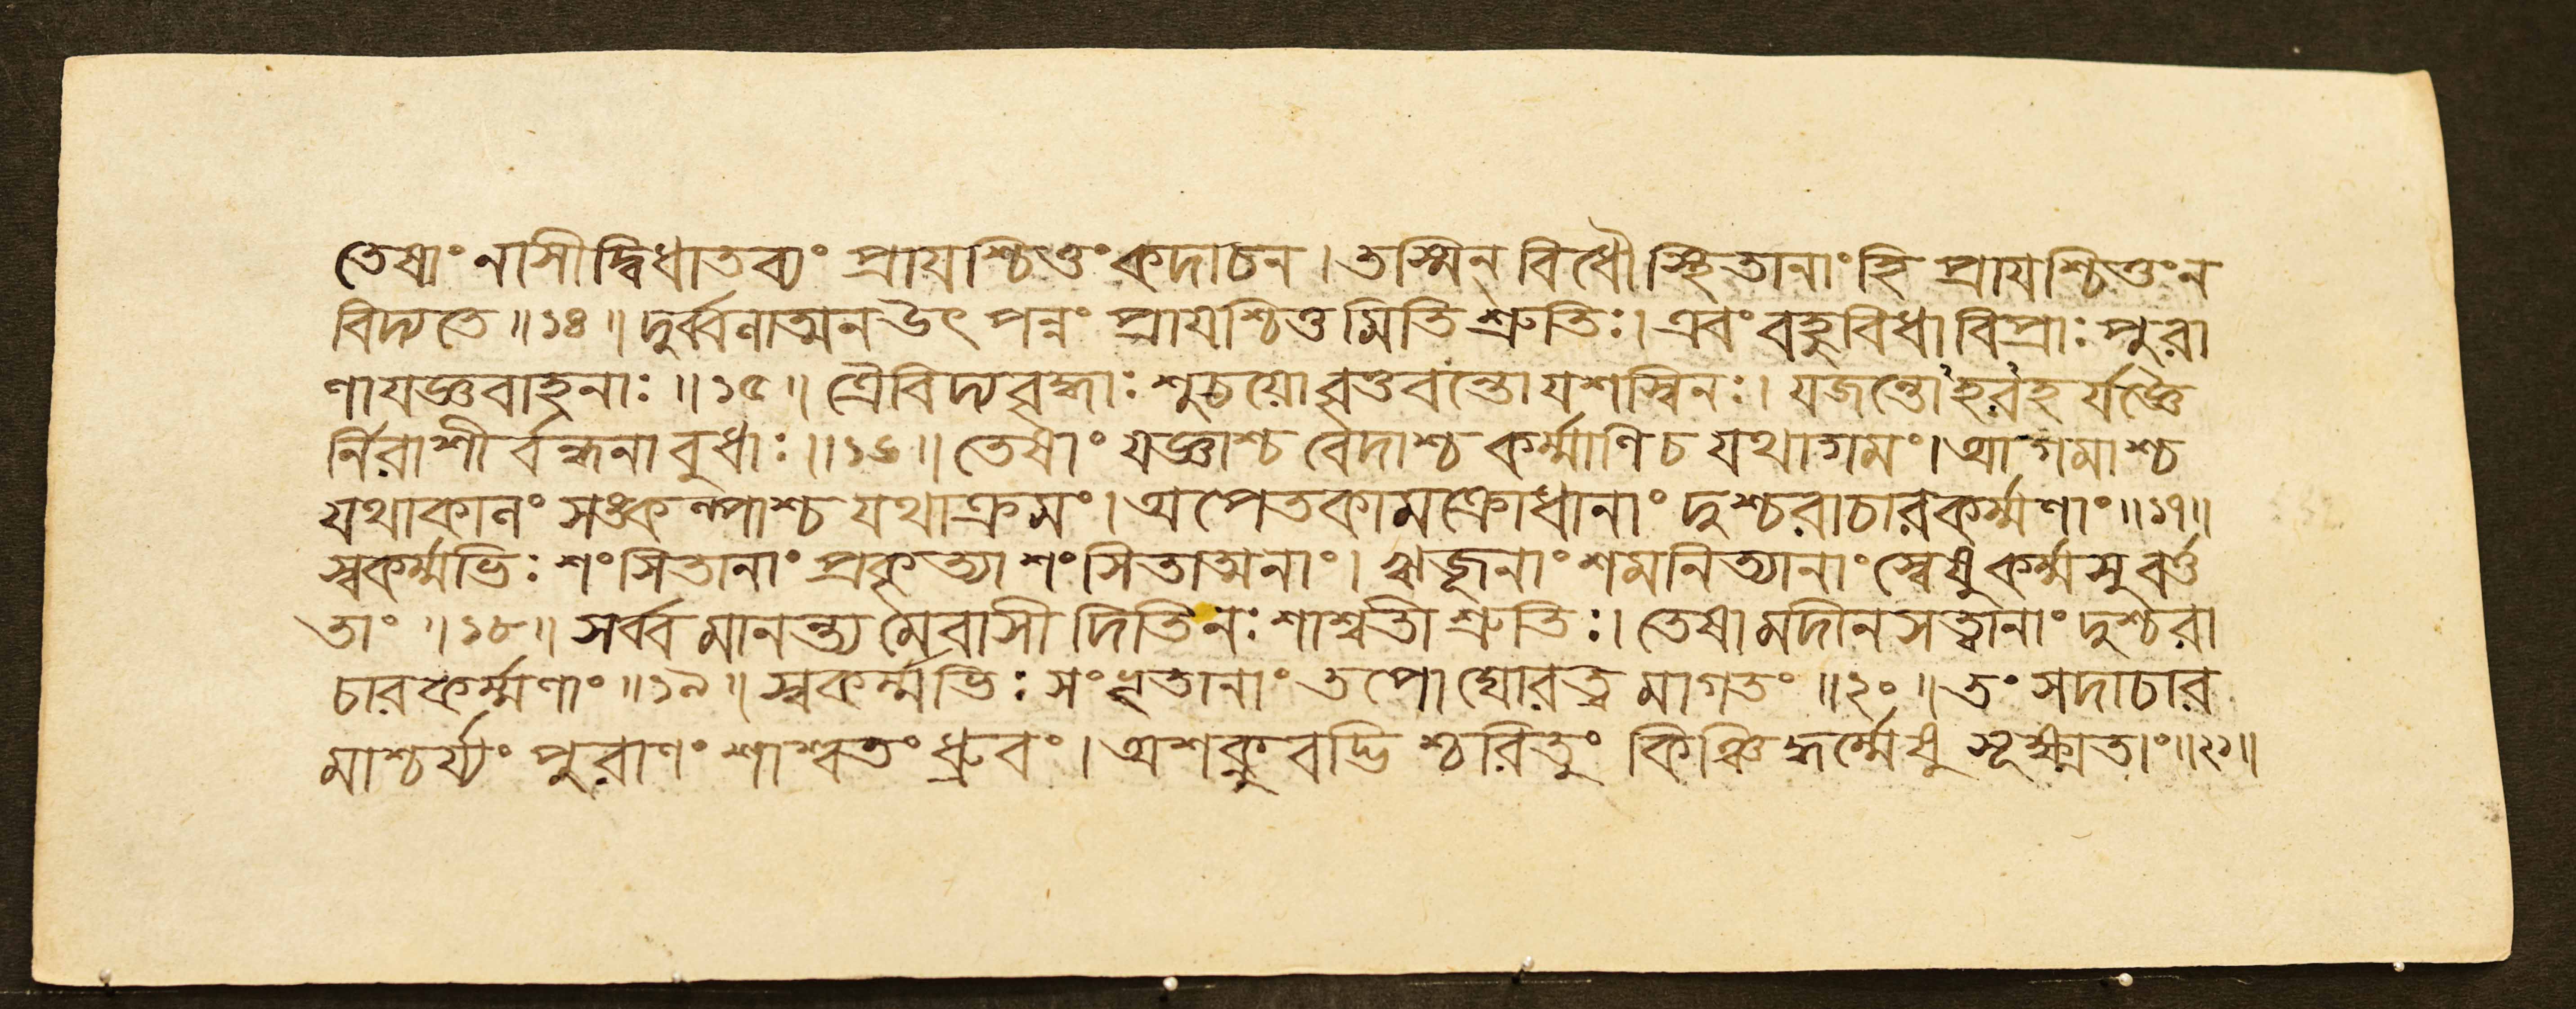 তেষাং নাসীদ্বিধাতব্যং প্রায়শ্চিত্তং কদাচন। তস্মিন বিধৌ স্থিতানাং হি প্রাযশ্চিত্তং ন
বিদ্যতে॥১৪॥ দুর্ব্বণাত্মন উৎপন্নং প্রাযশ্চিত্তমিতি শ্রুতিঃ। এবং বহুবিধা বিপ্রাঃ পুরা
ণা যজ্ঞবাহনাঃ॥১৫॥ ত্রৈবিদ্যবৃদ্ধাঃ শুচয়ো বৃত্তবন্তো যশস্বিনঃ। যজন্তোঽহরঽহ র্যজ্ঞৈ
র্নিরাশীর্বন্ধনা বুধাঃ॥১৬॥ তেষাং যজ্ঞাশ্চ বেদাশ্চ কর্ম্মাণি চ যথাগমং। আগমাশ্চ
যথাকালং সঙ্কল্পাশ্চ যথাক্রমং। অপেতকামক্রোধানাং দুশ্চরাচারকর্ম্মণাং॥১৭॥
স্বকর্ম্মভিঃ শংসিতানাং প্রকৃত্যা শংসিতাত্মনাং। ঋজূনাং শমনিত্যানাং স্বেষু কর্ম্মসু বর্ত্ত
তাং॥১৮॥ সর্ব্বমানন্ত্যমেবাসীদিতি নঃ শাশ্বতী শ্রুতিঃ। তেষামদীনসত্ত্বানাং দুশ্চরা
চারকর্ম্মণাং॥১৯॥ স্বকর্ম্মভিঃ সংধৃতানাং তপো ঘোরত্বমাগতং॥২০॥ তং সদাচার
মাশ্চর্য্যং পুরাণং শাশ্বতং ধ্রুবং। অশক্নুবদ্ভিশ্চরিতুং কিঞ্চিদ্ধর্ম্মেষু সূক্ষ্মতাং॥২১॥